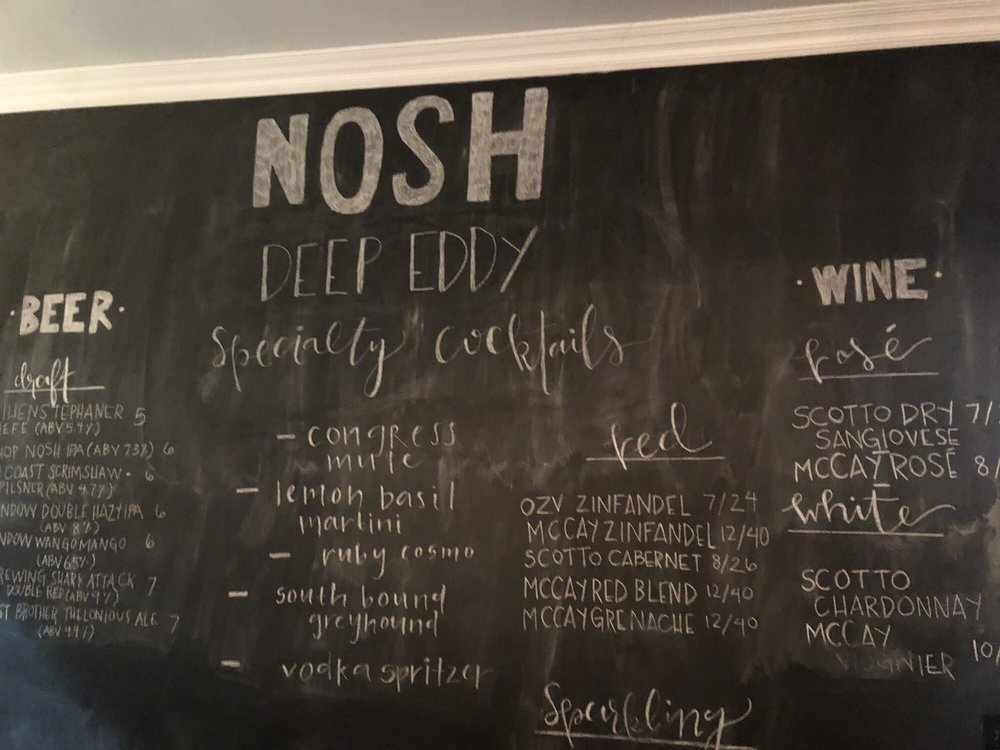 NOSH
DEEP EDDY
Specialty Cocktails
- congress
mule
- lemon basil
martini
- ruby cosmo
- south bound
greyhound
- vodka spritzer
·BEER·
draft
IHENSTEPHANER 5
EFE (ABV 5.4%)
HOP NOSH IPA (ABV 7.3%) 6
COAST SCRIMSHAW - 6
PILSNER (ABV 4.7%)
NDOW DOUBLE HAZY IPA 6
(ABV 8%)
NDOW WANGO MANGO 6
(ABV 6.5%)
REWING SHARK ATTACK 7
DOUBLE RED (ABV 9%)
ST BROTHER THELONIOUS ALE 7
(ABV 9.4%)
red
OZV ZINFANDEL 7/24
MCCAY ZINFANDEL 12/40
SCOTTO CABERNET 8/26
MCCAY RED BLEND 12/40
MCCAY GRENACHE 12/40
Sparkling
·WINE·
rosé
SCOTTO DRY 7/
SANGIOVESE
MCCAY ROSÉ 8/
white
SCOTTO
CHARDONNAY
MCCAY
VIOGNIER 10/